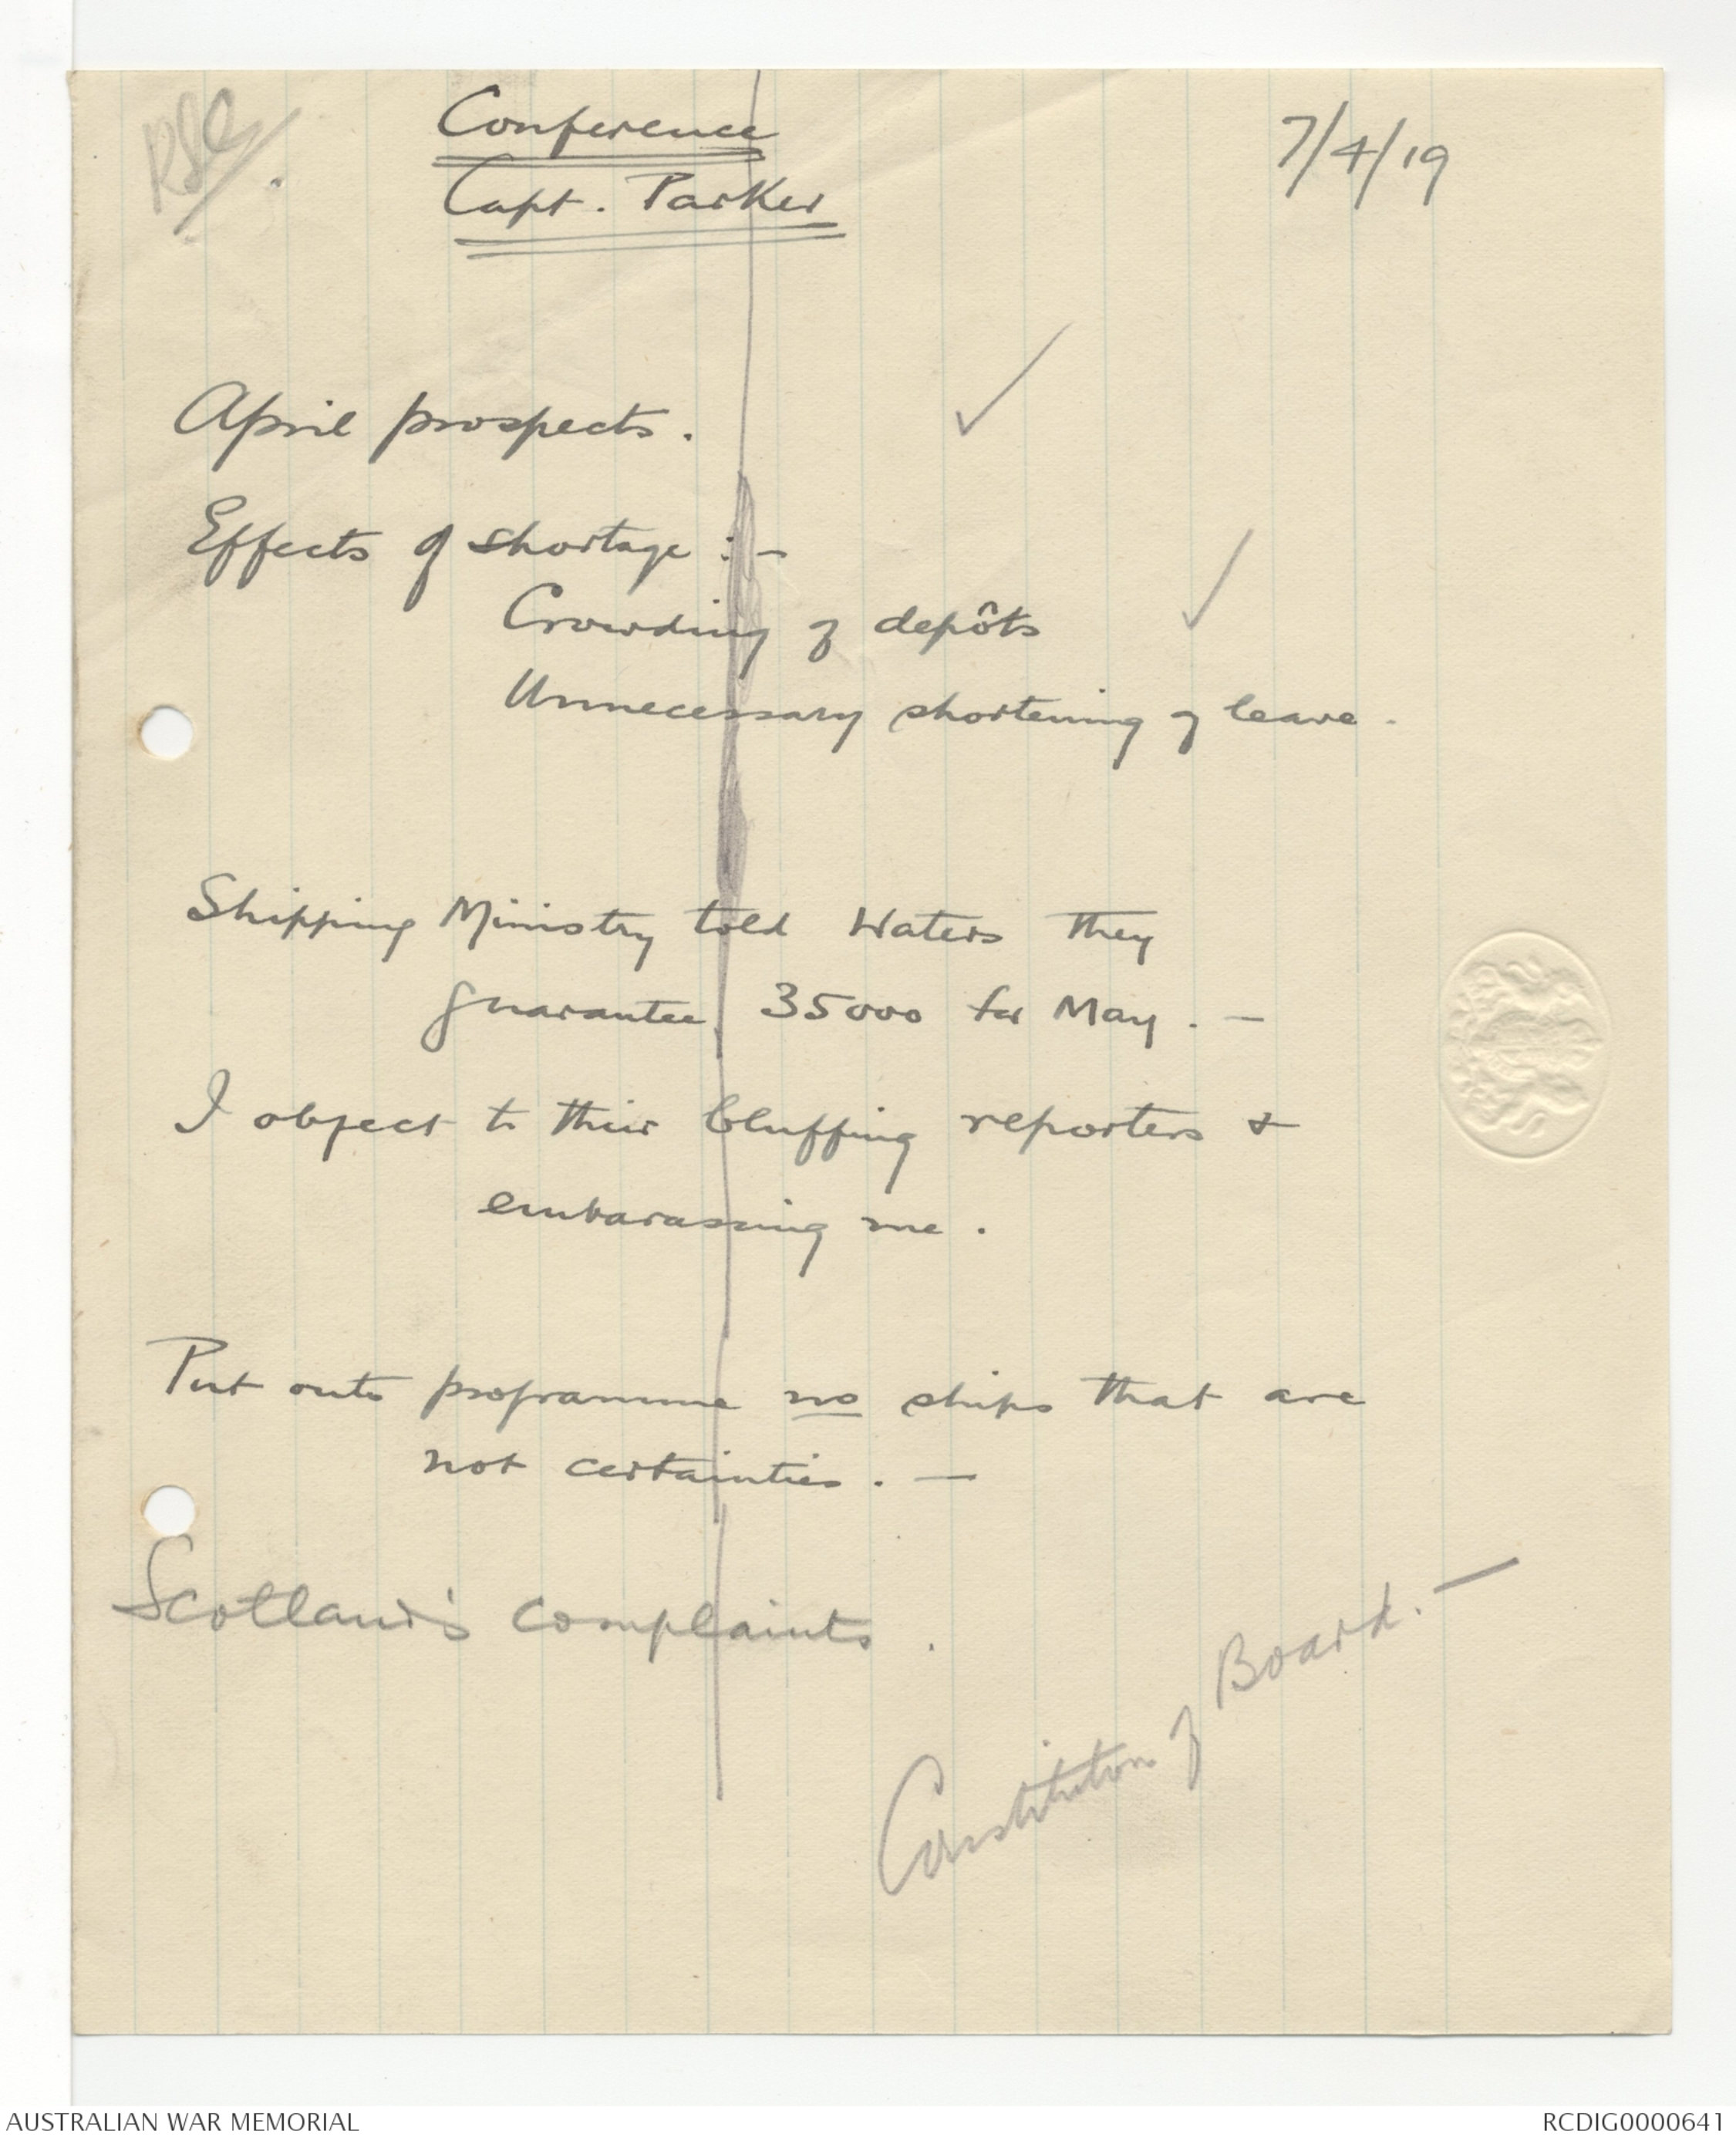 Conference
7/4/19
Capt. Parker
April prospects. ✓
Effects of shortage :-
Crowding of depôts ✓
Unnecessary shortening of leave.
Shipping Ministry told Waters they
guarantee 35000 for May. -
I object to their bluffing reporters &
embarassing me.
Put onto programme no ships that are
not certainties. -
Scotland's complaints.
Constitution of Board. -
AUSTRALIAN WAR MEMORIAL
RCDIG0000641